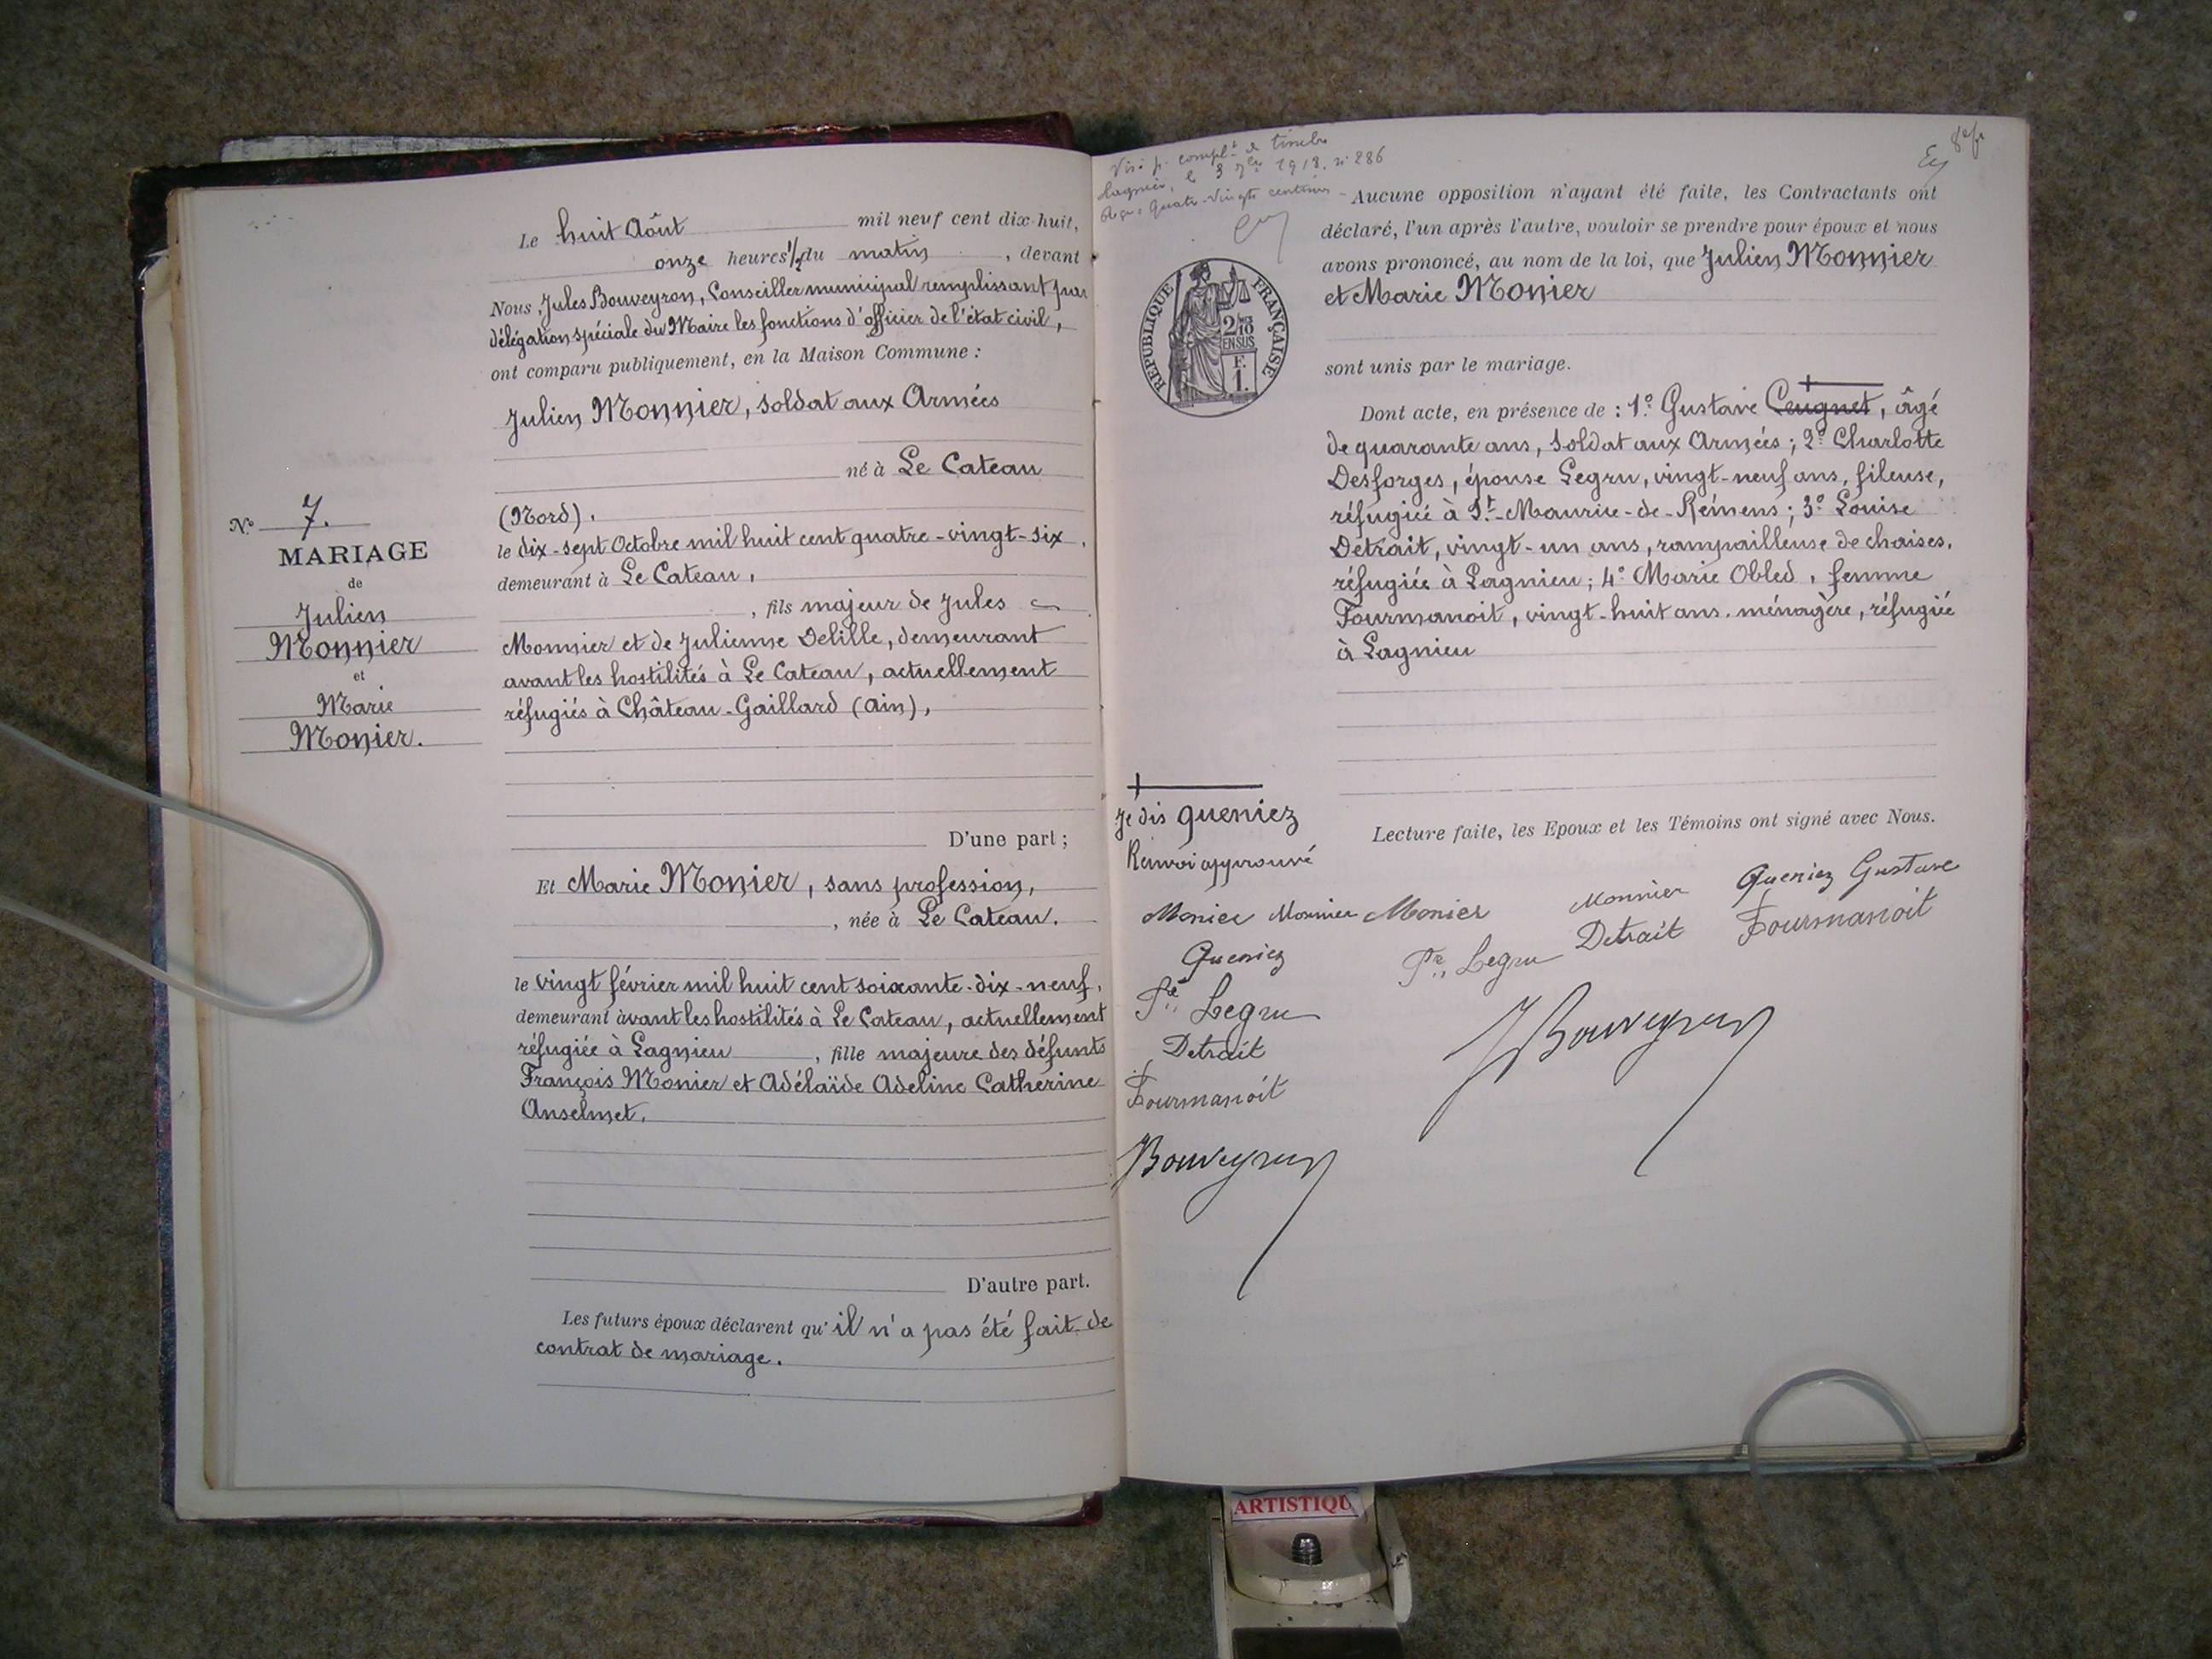 Nº 7.
MARIAGE
de
Julien
Monnier
et
Marie
Monier.
Le huit Août mil neuf cent dix-huit,
onze heures 1/2 du matin, devant
Nous, Jules Bouveyron, Conseiller municipal remplissant par
délégation spéciale du Maire les fonctions d'officier de l'état civil,
ont comparu publiquement, en la Maison Commune :
Julien Monnier, soldat aux Armées
né à Le Cateau
(Nord),
le dix-sept Octobre mil huit cent quatre-vingt-six,
demeurant à Le Cateau,
, fils majeur de Jules
Monnier et de Julienne Delille, demeurant
avant les hostilités à Le Cateau, actuellement
réfugiés à Château-Gaillard (Ain),
D'une part ;
Et Marie Monier, sans profession,
, née à Le Cateau.
le vingt février mil huit cent soixante-dix-neuf,
demeurant avant les hostilités à Le Cateau, actuellement
réfugiée à Lagnieu, fille majeure des défunts
François Monier et Adélaïde Adeline Catherine
Anselmet.
D'autre part.
Les futurs époux déclarent qu'il n'a pas été fait de
contrat de mariage.
Visé p. complt de timbre
Lagnieu, le 3 7bre 1918. nº 286
Reçu : Quatre-vingts centimes
8e f
Aucune opposition n'ayant été faite, les Contractants ont
déclaré, l'un après l'autre, vouloir se prendre pour époux et nous
avons prononcé, au nom de la loi, que Julien Monnier
et Marie Monier
RÉPUBLIQUE FRANÇAISE
2/10
EN SUS
F.
1.
sont unis par le mariage.
Dont acte, en présence de : 1º Gustave Ceugnet, âgé
de quarante ans, soldat aux Armées ; 2º Charlotte
Desforges, épouse Legru, vingt-neuf ans, fileuse,
réfugiée à St-Maurice-de-Rémens ; 3º Louise
Detrait, vingt-un ans, rampailleuse de chaises,
réfugiée à Lagnieu ; 4º Marie Obled, femme
Fourmanoit, vingt-huit ans, ménagère, réfugiée
à Lagnieu
Je dis Queniez
Renvoi approuvé
Lecture faite, les Epoux et les Témoins ont signé avec Nous.
Monier Monnier Monier Monnier Queniez Gustave
Queniez
Fe Legru Detrait Fourmanoit
Fe Legru
Detrait
Fourmanoit
JBouveyron
Bouveyron
ARTISTIQU